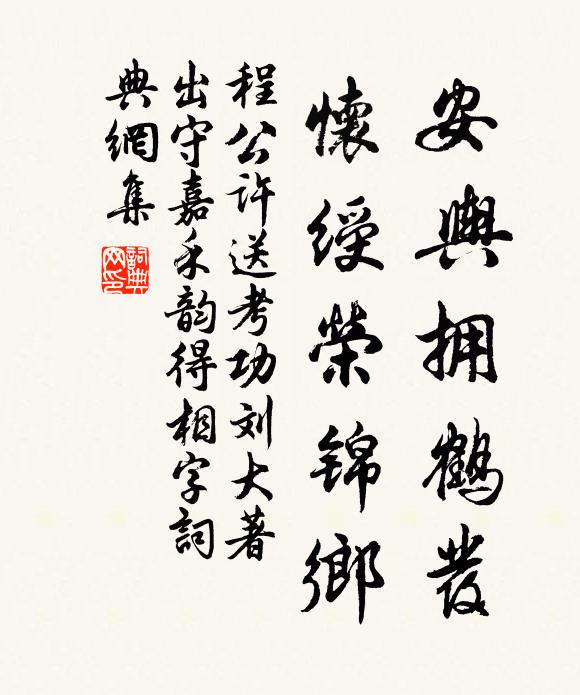 安輿拥鶴發
懷綬榮錦鄉
程公许送考功刘大著
出守嘉禾韵得相字詞
典網集
詞典
网印